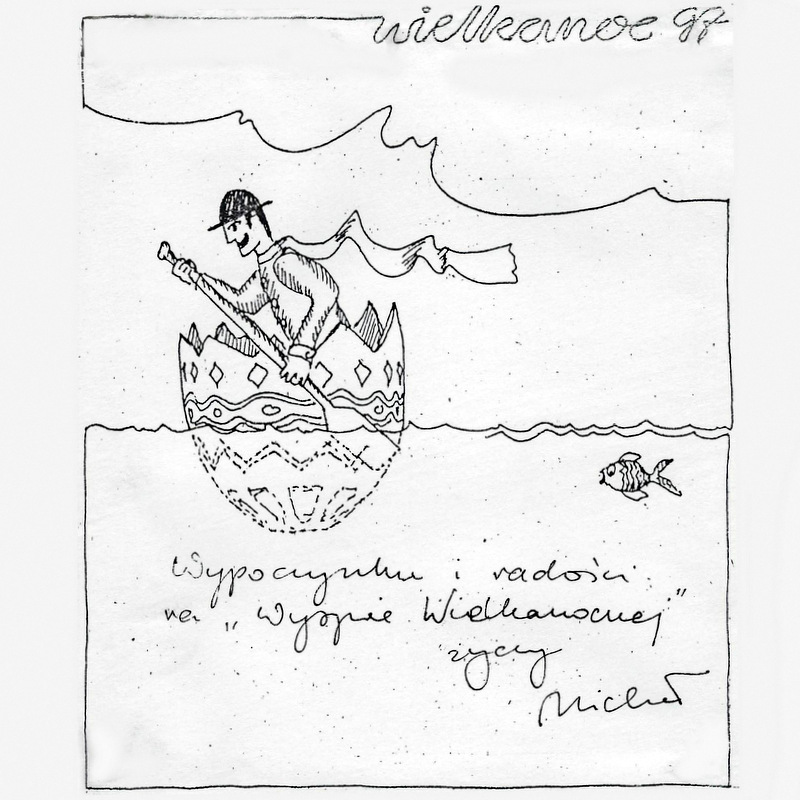 wielkanoc 97
Wypoczynku i radości
na „Wyspie Wielkanocnej”
życzy
Michał